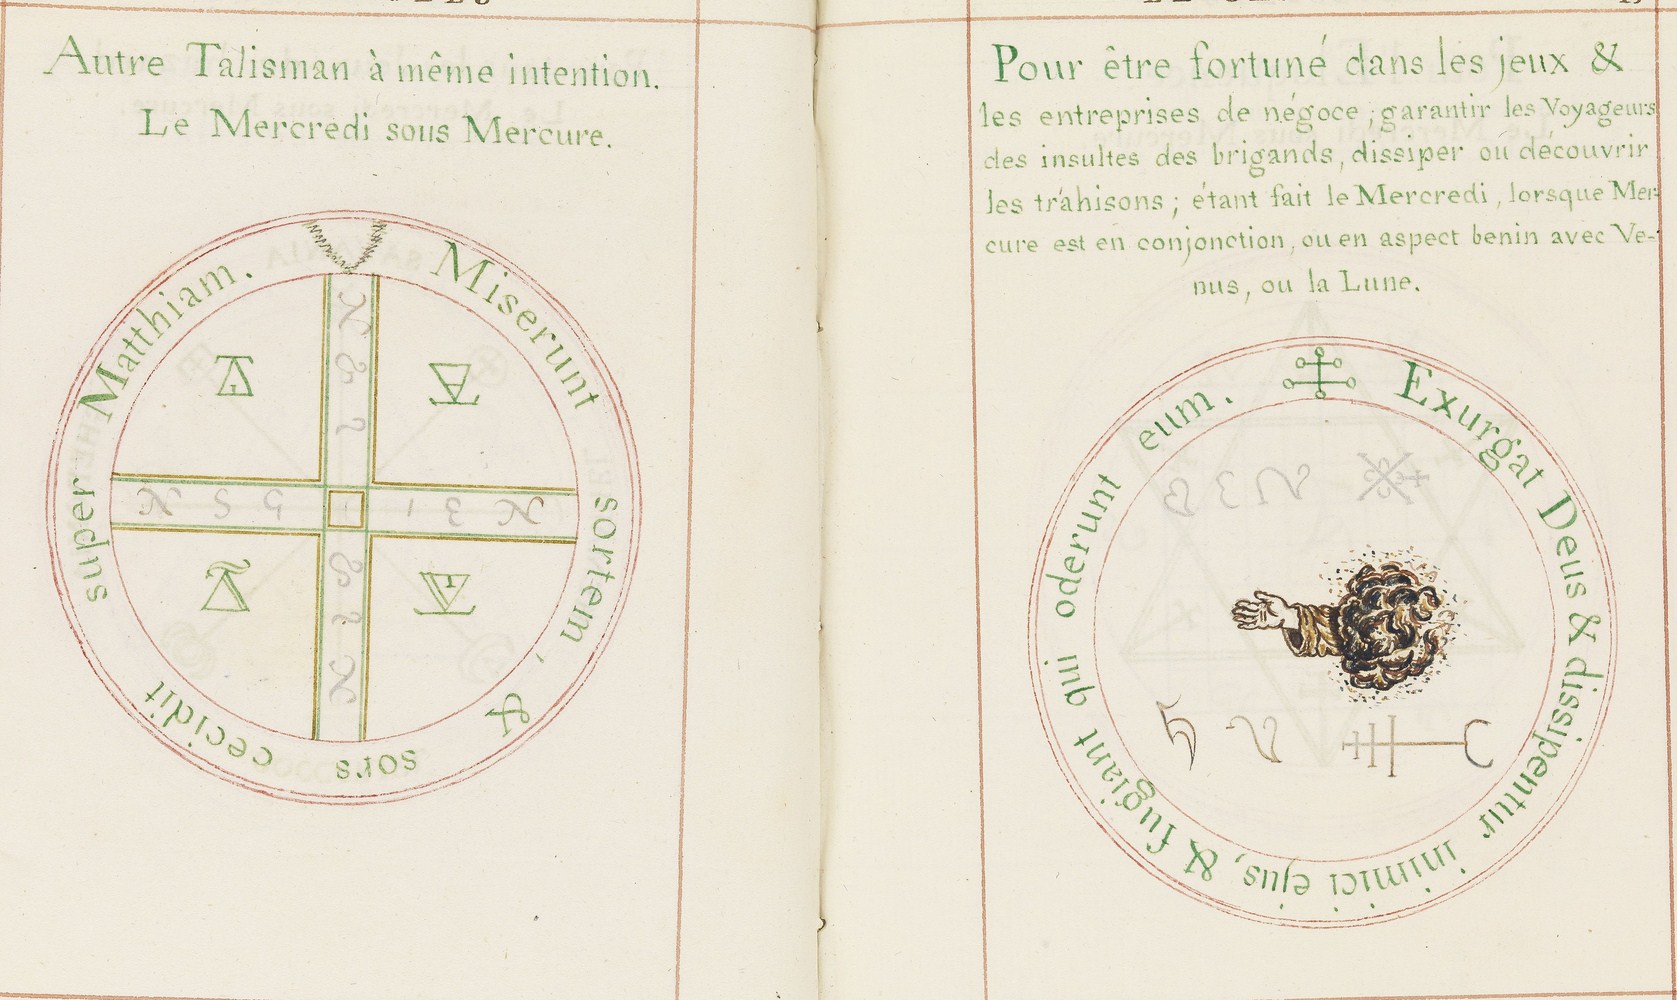 Autre Talisman à même intention.
Le Mercredi sous Mercure.
Miserunt sortem, & sors cecidit super Matthiam.
Pour être fortuné dans les jeux &
les entreprises de négoce; garantir les Voyageurs
des insultes des brigands, dissiper ou découvrir
les trahisons; étant fait le Mercredi, lorsque Mer-
cure est en conjonction, ou en aspect benin avec Ve-
nus, ou la Lune.
Exurgat Deus & dissipentur inimici ejus, & fugiant qui oderunt eum.